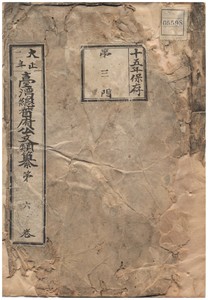 十五年保存
第三門
大正
年
臺灣總督府公文類纂
第六卷